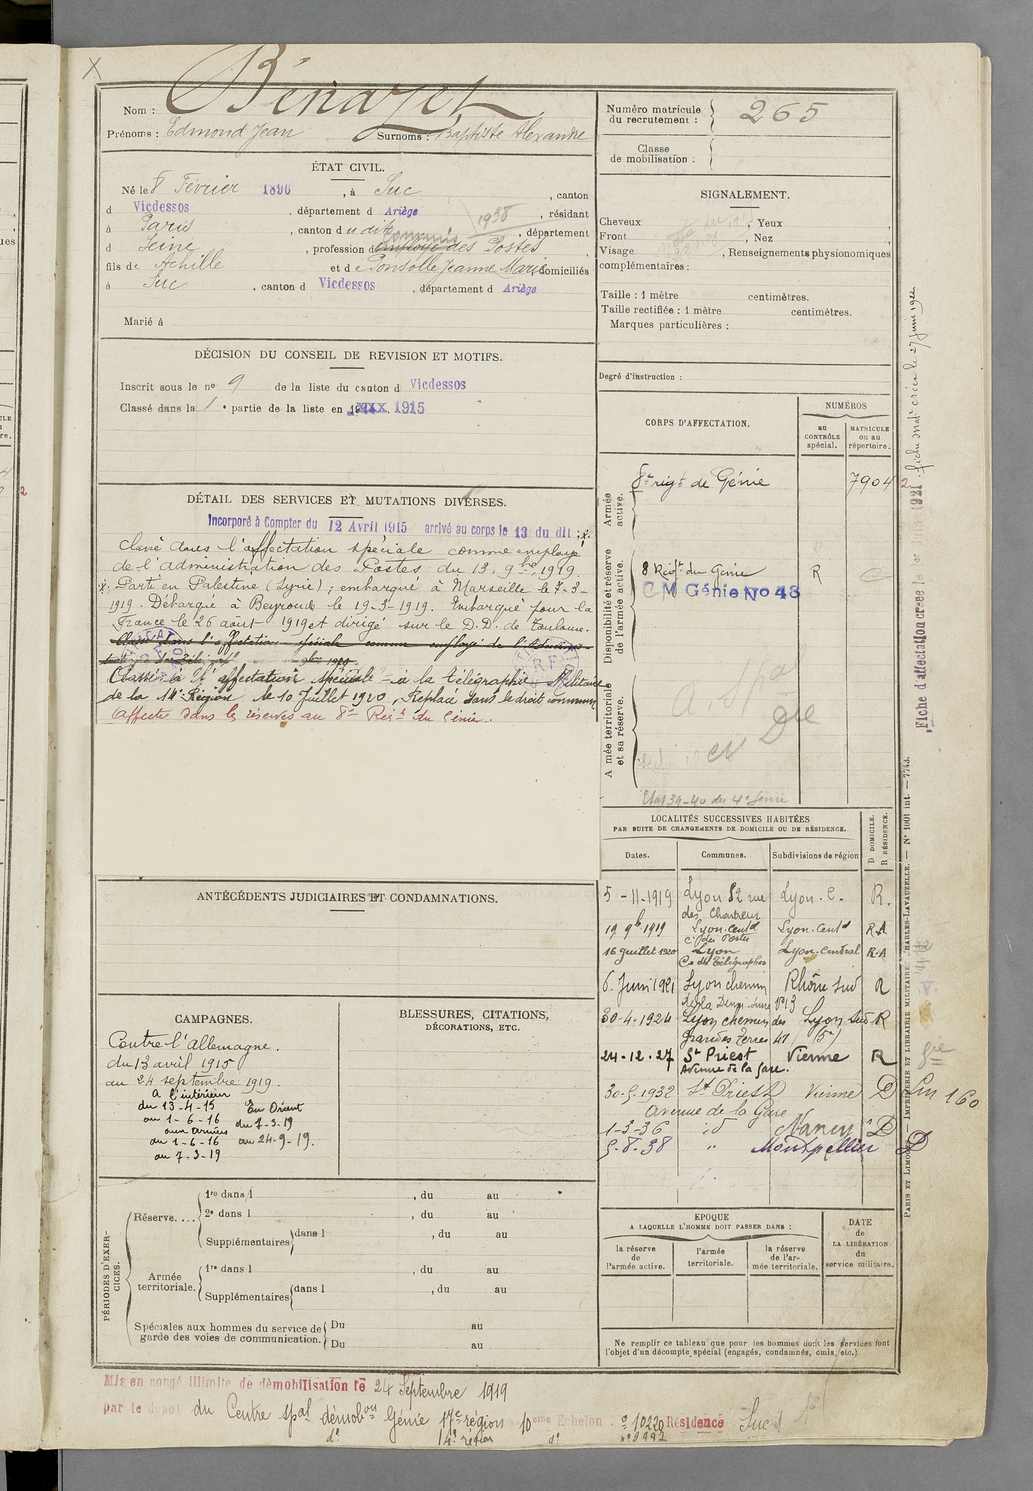 Bénazet
Nom :
Prénoms : Edmond Jean Surnoms : Baptiste Alexandre
Numéro matricule du recrutement : 265
Classe de mobilisation :
ÉTAT CIVIL.
Né le 8 Février 1896, à Suc, canton
d Vicdessos, département d Ariège, résidant
à Paris, canton d u dit, département
1938
d Seine, profession d employé des Postes
fils de Achille et de Ponsolle Jeanne Marie domiciliés
à Suc, canton d Vicdessos, département d Ariège
Marié à
SIGNALEMENT.
Cheveux , Yeux
Front , Nez
Visage , Renseignements physionomiques
complémentaires :
Taille : 1 mètre centimètres.
Taille rectifiée : 1 mètre centimètres.
Marques particulières :
Degré d'instruction :
DÉCISION DU CONSEIL DE REVISION ET MOTIFS.
Inscrit sous le n° 9 de la liste du canton d Vicdessos
Classé dans la 1e partie de la liste en 1915
CORPS D'AFFECTATION.
NUMÉROS
au CONTRÔLE spécial.
MATRICULE ou au répertoire.
Armée active.
8e régt de Génie 7904
Disponibilité et réserve de l'armée active.
8 Régt du Génie R
C M Génie No 43
Armée territoriale et sa réserve.
A. Spal
Etat 39-40 du 4e Génie
Fiche d'affectation créée le 1er Juin 1921. fiche créée le 27 juin 1922
DÉTAIL DES SERVICES ET MUTATIONS DIVERSES.
Incorporé à Compter du 12 Avril 1915 arrivé au corps le 13 du dit ; x.
Classé dans l'affectation spéciale comme employé
de l'administration des Postes du 13. 9bre 1919
x. Parti en Palestine (Syrie) ; embarqué à Marseille le 7-3-
1919. Débarqué à Beyrouth le 19-3-1919. Embarqué pour la
France le 26 août 1919 et dirigé sur le D.D. de Toulouse.
Classé dans l'affectation spéciale comme employé de l'Adminis-
9bre 1920
Classé à l'affectation spéciale à la Télégraphie Militaire
de la 14e Région le 10 Juillet 1920, Replacé dans le droit commun
Affecté dans les réserves au 8e Régt du Génie.
LOCALITÉS SUCCESSIVES HABITÉES
PAR SUITE DE CHANGEMENTS DE DOMICILE OU DE RÉSIDENCE.
Dates. Communes. Subdivisions de région
D DOMICILE. R RÉSIDENCE.
5-11-1919 Lyon 52 rue des Chartreux Lyon. C. R.
19 9b 1919 Lyon. Cent. C. des Postes Lyon. Cent. R.A
16 Juillet 1920 Lyon Ce de Télégraphie Lyon. Central R.A
6. Juin 1921 Lyon chemin Rhône Sud R
30-4-1924 Lyon chemin des Grandes Terres 41 Lyon Sud R
24-12-27 St Priest Avenue de la Gare. Vienne R
30-5-1932 St Priest Avenue de la Gare Vienne D
1-3-36 id Nancy D
5-8-38 " Montpellier D
ANTÉCÉDENTS JUDICIAIRES ET CONDAMNATIONS.
CAMPAGNES.
Contre l'Allemagne.
du 13 avril 1915
au 24 septembre 1919.
A l'intérieur
du 13-4-15
au 1-6-16
aux armées
du 1-6-16
au 7-3-19
En Orient
du 7-3-19
au 24-9-19.
BLESSURES, CITATIONS,
DÉCORATIONS, ETC.
PÉRIODES D'EXERCICES.
Réserve....
1re dans l , du au
2e dans l , du au
Supplémentaires dans l , du au
Armée territoriale.
1re dans l , du au
Supplémentaires dans l , du au
Spéciales aux hommes du service de garde des voies de communication.
Du au
Du au
EPOQUE
A LAQUELLE L'HOMME DOIT PASSER DANS :
la réserve de l'armée active.
l'armée territoriale.
la réserve de l'armée territoriale.
DATE de LA LIBÉRATION du service militaire.
Ne remplir ce tableau que pour les hommes dont les services font
l'objet d'un décompte spécial (engagés, condamnés, omis, etc.).
PARIS ET LIMOGES. — IMPRIMERIE ET LIBRAIRIE MILITAIRE. CHARLES-LAVAUZELLE. — N° 1001 int. — 7743.
Mis en congé illimité de démobilisation le 24 Septembre 1919
par le dépôt du Centre spal démobon Génie 17e région 10eme Echelon n° 10220 Résidence Suc
d° 14e région d° n° 2992